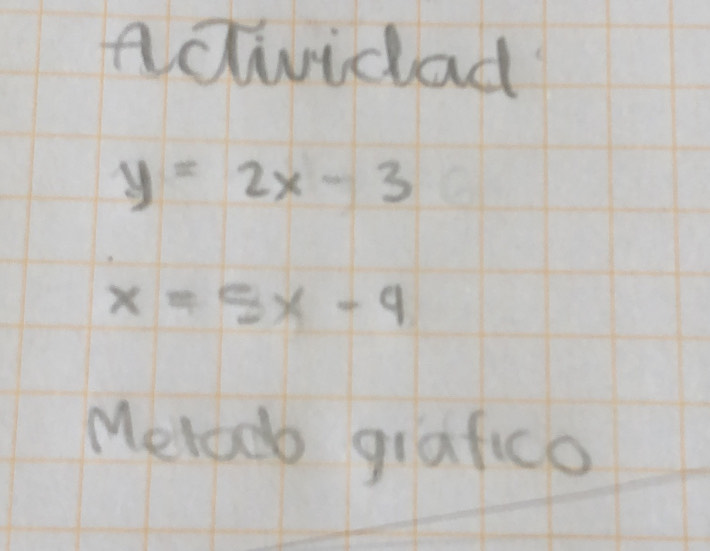 Actividad
y = 2x - 3
x = 5x - 9
Metodo gráfico